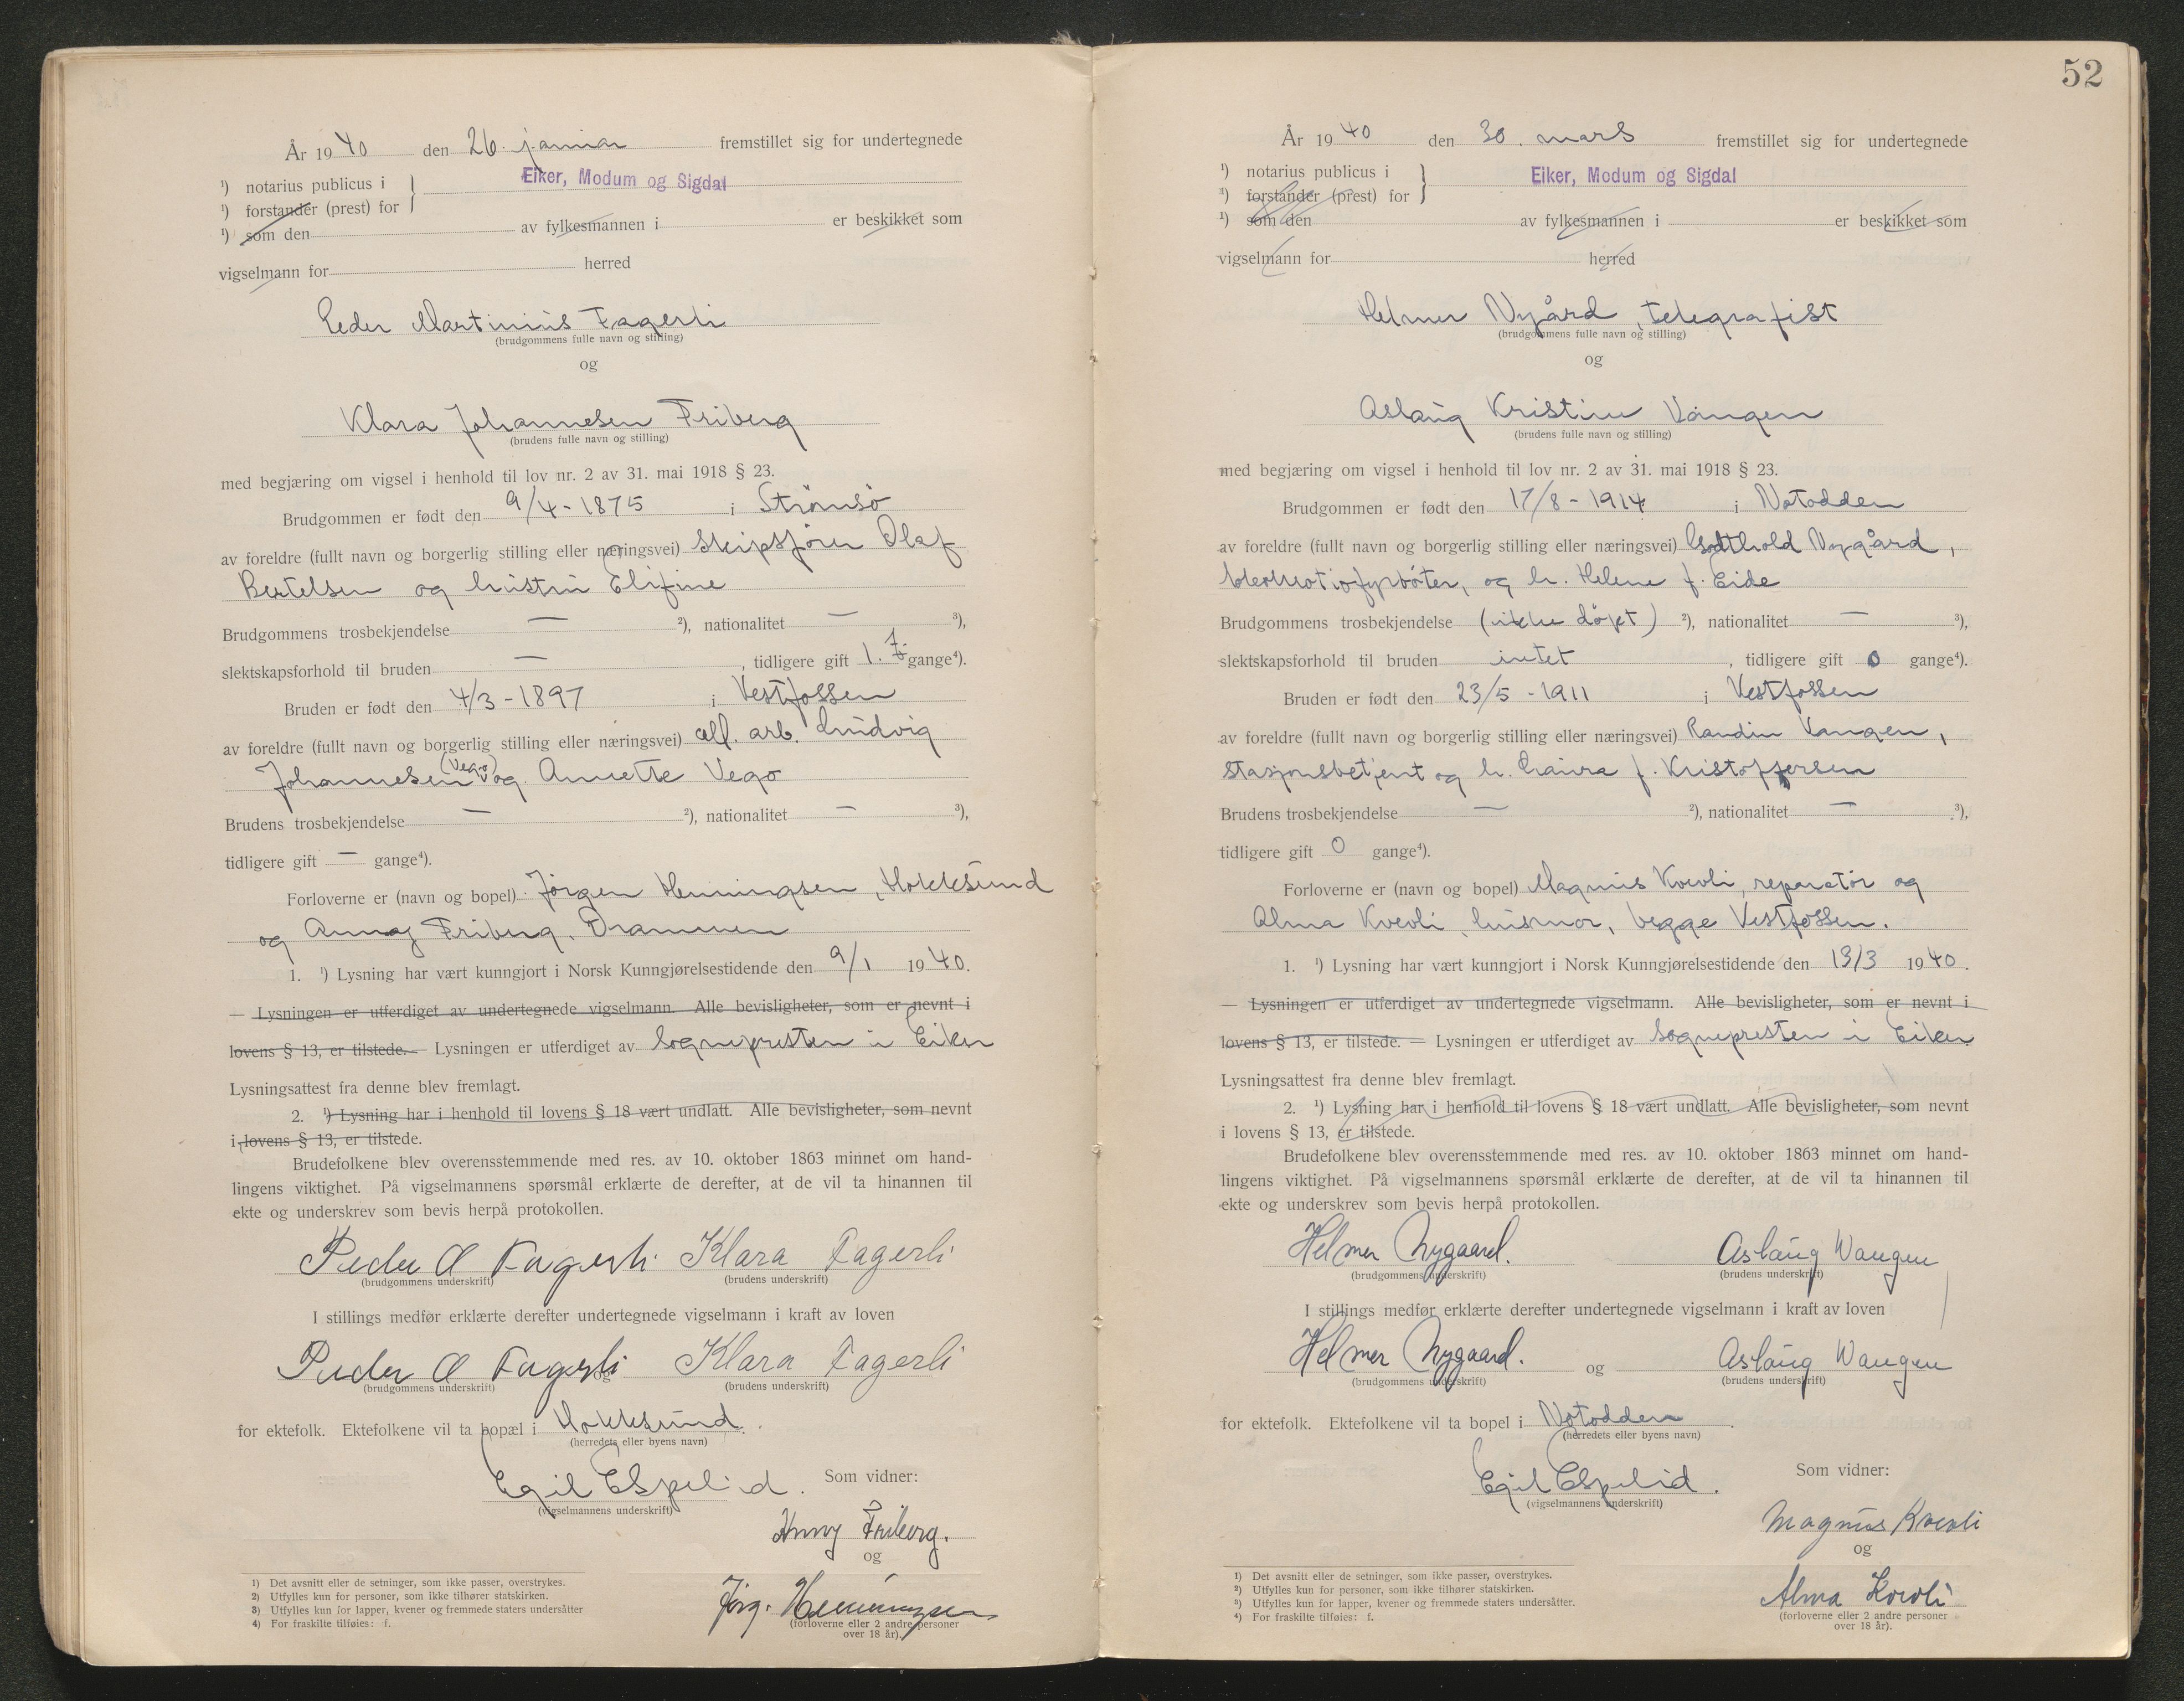 År 1940 den 26. januar fremstillet sig for undertegnede
¹) notarius publicus i } Eiker, Modum og Sigdal
¹) forstander (prest) for
¹) som den av fylkesmannen i er beskikket som
vigselmann for herred
Peder Martinius Fagerli
(brudgommens fulle navn og stilling)
og
Klara Johannesen Friberg
(brudens fulle navn og stilling)
med begjæring om vigsel i henhold til lov nr. 2 av 31. mai 1918 § 23.
Brudgommen er født den 9/4 - 1875 i Strømsø
av foreldre (fullt navn og borgerlig stilling eller næringsvei) Skipsfører Olaf
Bertelsen og hustru Elifine
Brudgommens trosbekjendelse — ²), nationalitet — ³),
slektskapsforhold til bruden — , tidligere gift 1. f. gange⁴).
Bruden er født den 4/3 - 1897 i Vestfossen
av foreldre (fullt navn og borgerlig stilling eller næringsvei) cell. arb. Ludvig
Johannesen (Vego) og Annette Vego
Brudens trosbekjendelse — ²), nationalitet — ³),
tidligere gift — gange⁴).
Forloverne er (navn og bopel) Jørgen Henningsen, Hokksund
og Anny Friberg, Drammen
1. ¹) Lysning har vært kunngjort i Norsk Kunngjørelsestidende den 9/1 1940.
— Lysningen er utferdiget av undertegnede vigselmann. Alle bevisligheter, som er nevnt i
lovens § 13, er tilstede. — Lysningen er utferdiget av Sognepresten i Eiker
Lysningsattest fra denne blev fremlagt.
2. ¹) Lysning har i henhold til lovens § 18 vært undlatt. Alle bevisligheter, som nevnt
i lovens § 13, er tilstede.
Brudefolkene blev overensstemmende med res. av 10. oktober 1863 minnet om hand-
lingens viktighet. På vigselmannens spørsmål erklærte de derefter, at de vil ta hinannen til
ekte og underskrev som bevis herpå protokollen.
Peder O Fagerli Klara Fagerli
(brudgommens underskrift) (brudens underskrift)
I stillings medfør erklærte derefter undertegnede vigselmann i kraft av loven
Peder O Fagerli og Klara Fagerli
(brudgommens underskrift) (brudens underskrift)
for ektefolk. Ektefolkene vil ta bopæl i Hokksund.
(herredets eller byens navn)
Egil Espelid. Som vidner:
(vigselmannens underskrift)
Anny Friberg.
og
Jørg. Henningsen
(forloverne eller 2 andre personer
over 18 år).
1) Det avsnitt eller de setninger, som ikke passer, overstrykes.
2) Utfylles kun for personer, som ikke tilhører statskirken.
3) Utfylles kun for lapper, kvener og fremmede staters undersåtter
4) For fraskilte tilføies: f.
52
År 1940 den 30. mars fremstillet sig for undertegnede
¹) notarius publicus i } Eiker, Modum og Sigdal
¹) forstander (prest) for
¹) som den av fylkesmannen i er beskikket som
vigselmann for herred
Helmer Nygård, telegrafist
(brudgommens fulle navn og stilling)
og
Aslaug Kristine Vangen
(brudens fulle navn og stilling)
med begjæring om vigsel i henhold til lov nr. 2 av 31. mai 1918 § 23.
Brudgommen er født den 17/8 - 1914 i Notodden
av foreldre (fullt navn og borgerlig stilling eller næringsvei) Godthold Nygård,
lokomotivfyrbøter, og h. Helene f. Eide
Brudgommens trosbekjendelse (ikke døpt) ²), nationalitet — ³),
slektskapsforhold til bruden intet , tidligere gift 0 gange⁴).
Bruden er født den 23/5 - 1911 i Vestfossen
av foreldre (fullt navn og borgerlig stilling eller næringsvei) Randin Vangen,
stasjonsbetjent og h. Laura f. Kristoffersen
Brudens trosbekjendelse — ²), nationalitet — ³),
tidligere gift 0 gange⁴).
Forloverne er (navn og bopel) Magnus Kvevli, reparatør og
Alma Kvevli, husmor, begge Vestfossen.
1. ¹) Lysning har vært kunngjort i Norsk Kunngjørelsestidende den 13/3 1940.
— Lysningen er utferdiget av undertegnede vigselmann. Alle bevisligheter, som er nevnt i
lovens § 13, er tilstede. — Lysningen er utferdiget av Sognepresten i Eiker
Lysningsattest fra denne blev fremlagt.
2. ¹) Lysning har i henhold til lovens § 18 vært undlatt. Alle bevisligheter, som nevnt
i lovens § 13, er tilstede.
Brudefolkene blev overensstemmende med res. av 10. oktober 1863 minnet om hand-
lingens viktighet. På vigselmannens spørsmål erklærte de derefter, at de vil ta hinannen til
ekte og underskrev som bevis herpå protokollen.
Helmer Nygaard. Aslaug Wangen
(brudgommens underskrift) (brudens underskrift)
I stillings medfør erklærte derefter undertegnede vigselmann i kraft av loven
Helmer Nygaard. og Aslaug Wangen
(brudgommens underskrift) (brudens underskrift)
for ektefolk. Ektefolkene vil ta bopel i Notodden.
(herredets eller byens navn)
Egil Espelid. Som vidner:
(vigselmannens underskrift)
Magnus Kvevli
og
Alma Kvevli
(forloverne eller 2 andre personer
over 18 år).
1) Det avsnitt eller de setninger, som ikke passer, overstrykes.
2) Utfylles kun for personer, som ikke tilhører statskirken.
3) Utfylles kun for lapper, kvener og fremmede staters undersåtter.
4) For fraskilte tilføies: f.